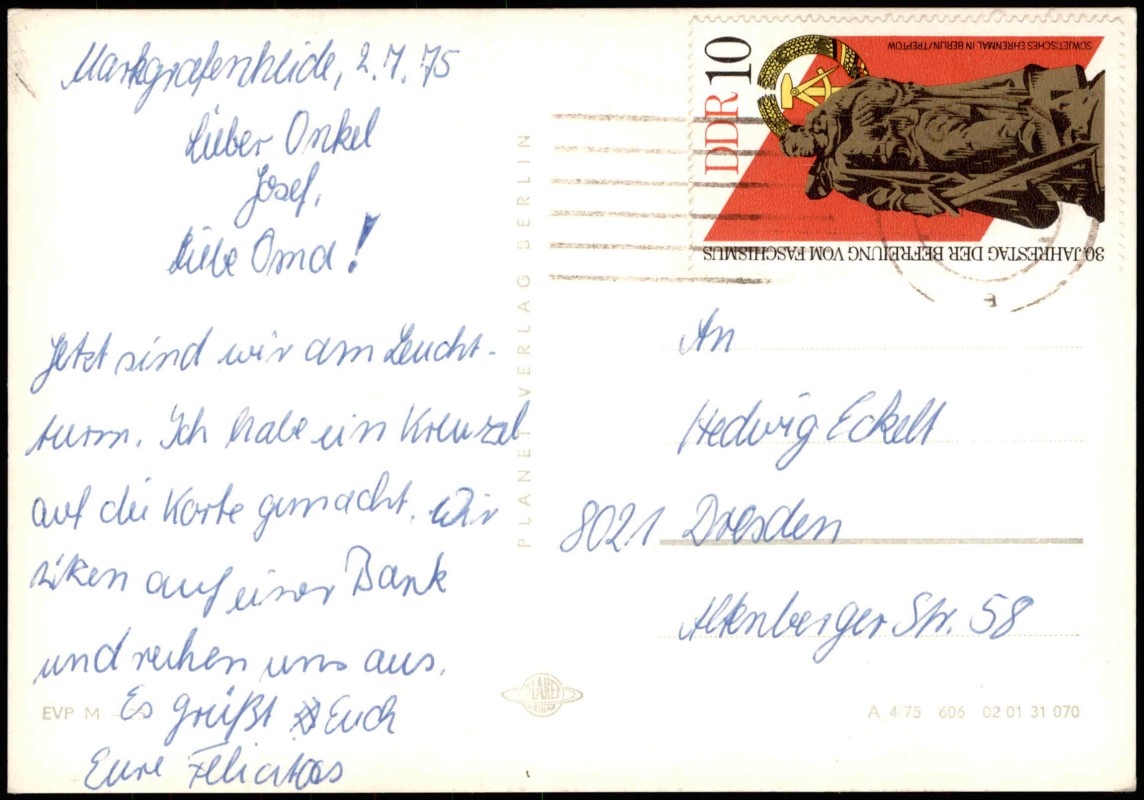 Markgrafenheide, 2.7.75
Lieber Onkel
Josef,
Liebe Oma!
Jetzt sind wir am Leucht-
turm. Ich habe ein Kreuzel
auf die Karte gemacht. Wir
sitzen auf einer Bank
und ruhen uns aus.
Es grüßt Euch
Eure Felicitas
EVP M
PLANET VERLAG BERLIN
DDR 10
SOWJETISCHES EHRENMAL IN BERLIN/TREPTOW
30. JAHRESTAG DER BEFREIUNG VOM FASCHISMUS
An
Hedwig Eckelt
8021 Dresden
Altenberger Str. 58
PLANET
A 4/75 606 02 01 31 070